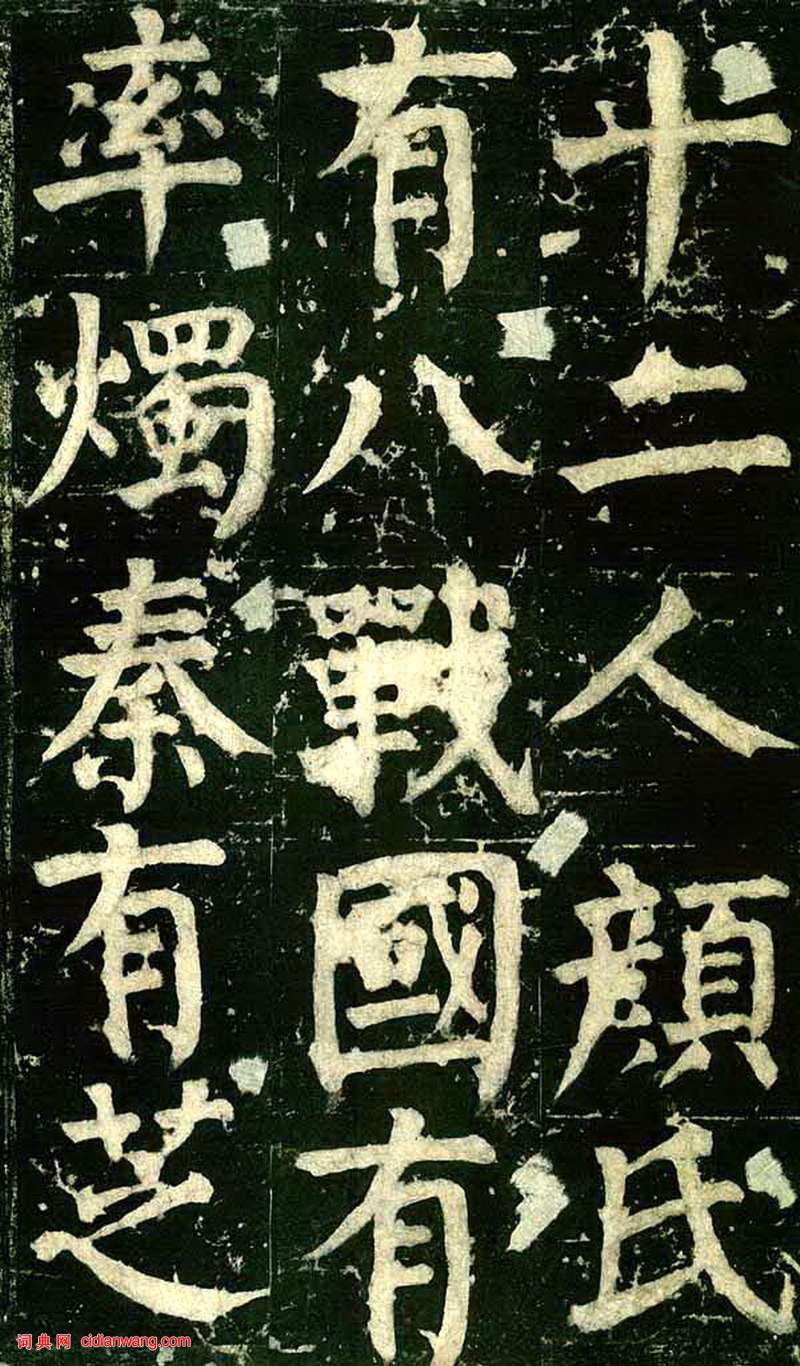 十二人顏氏
有八戰國有
率燭秦有芝
词典网 cidianwang.com